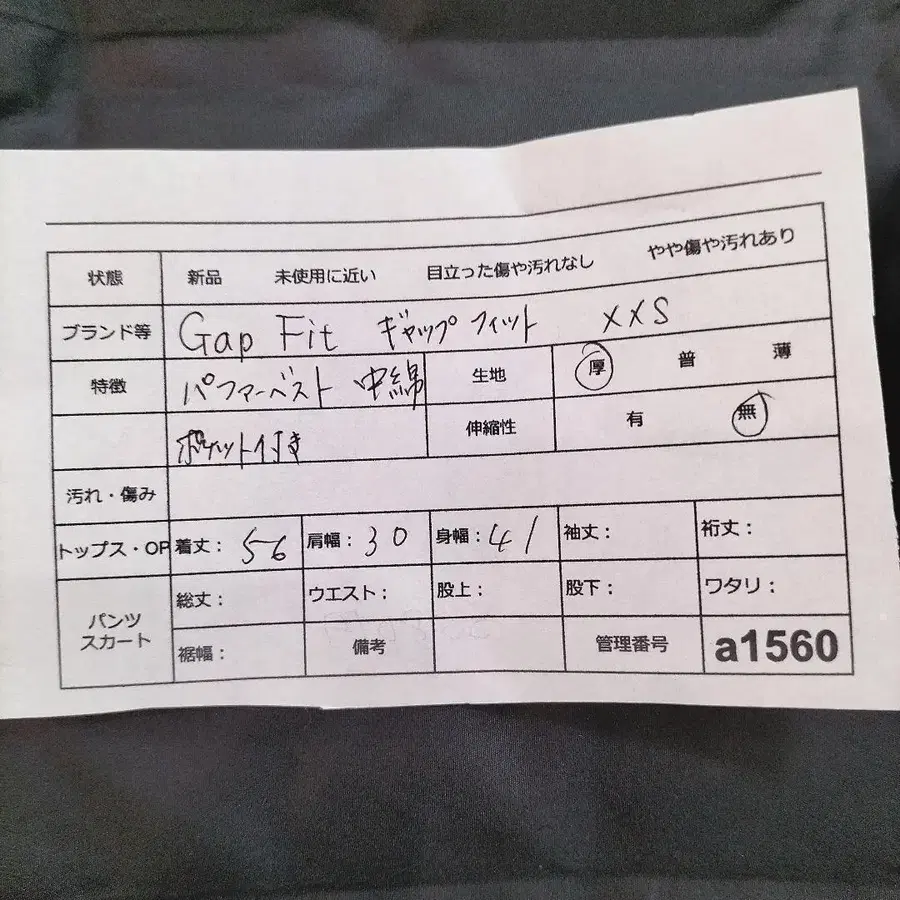 状態 新品 未使用に近い 目立った傷や汚れなし やや傷や汚れあり
ブランド等 Gap Fit ギャップフィット XXS
特徴 パファーベスト 中綿 生地 厚 普 薄
ポケット付き 伸縮性 有 無
汚れ・傷み
トップス・OP 着丈: 56 肩幅: 30 身幅: 41 袖丈: 裄丈:
パンツ スカート 総丈: ウエスト: 股上: 股下: ワタリ:
裾幅: 備考 管理番号 a1560